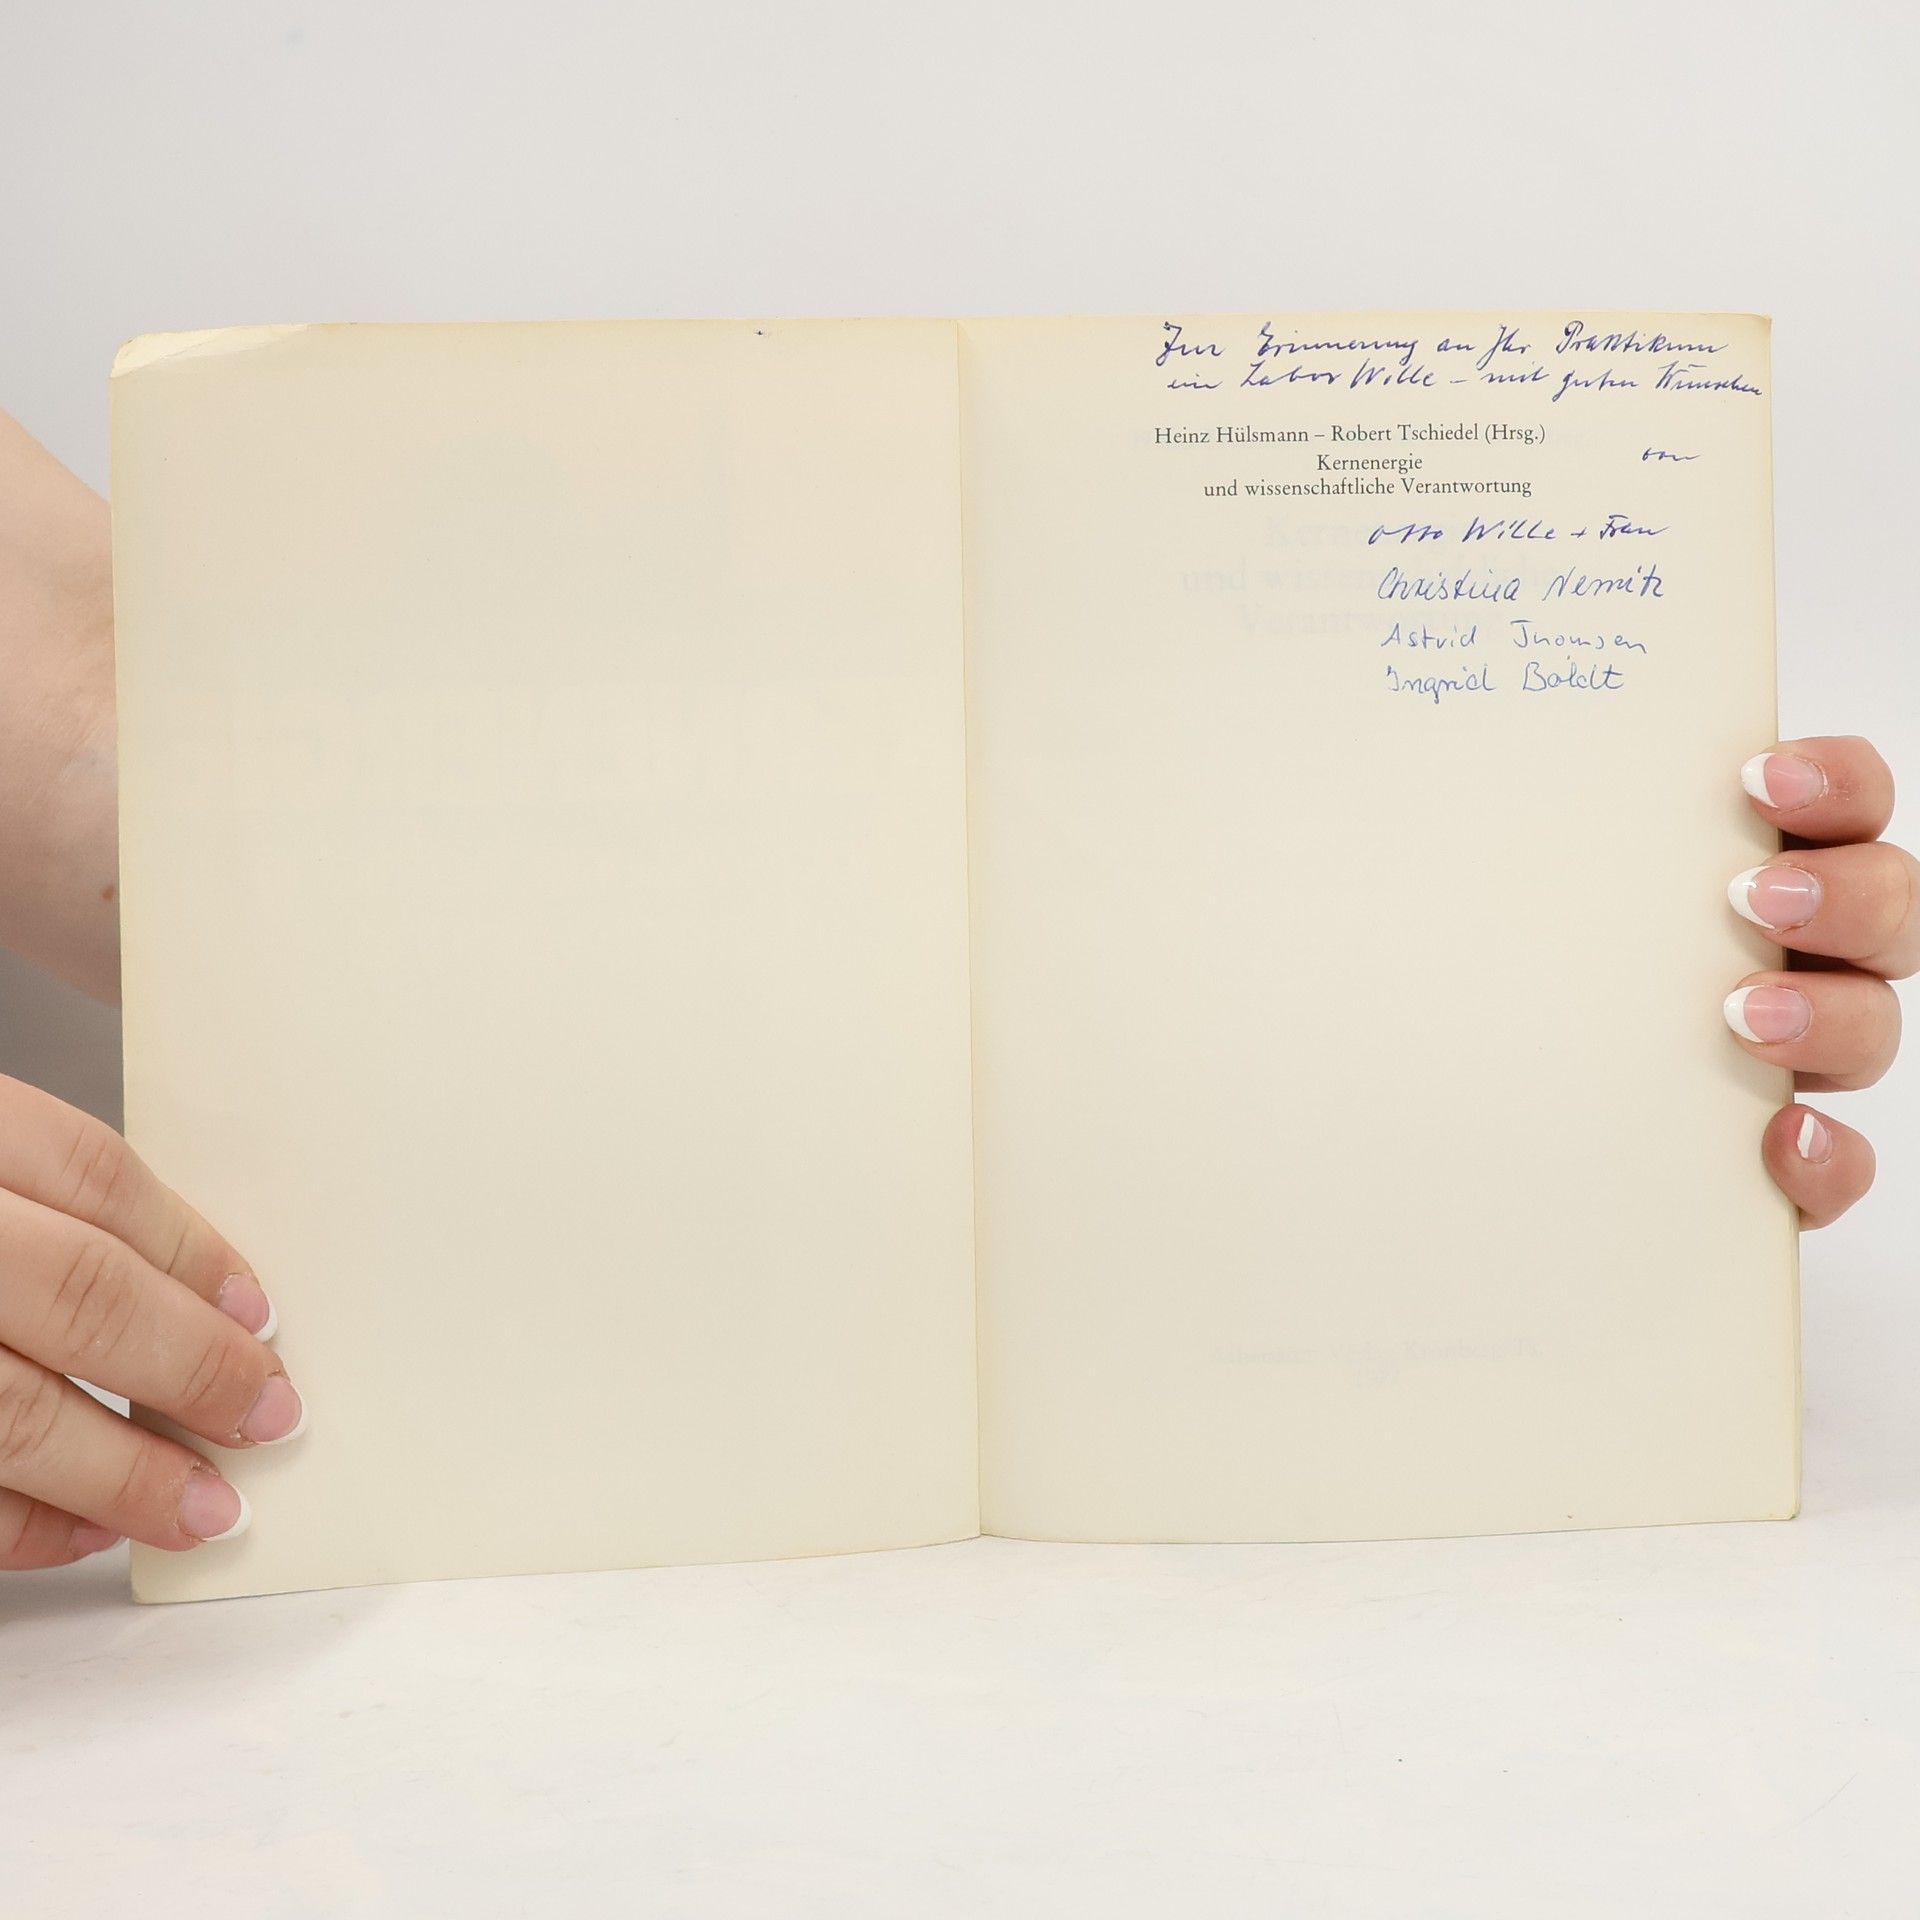 Zur Erinnerung an Ihr Praktikum
im Labor Wille - mit guten Wünschen
Heinz Hülsmann – Robert Tschiedel (Hrsg.)
von
Kernenergie
und wissenschaftliche Verantwortung
Otto Wille + Frau
Christina Nemitz
Astrid Thomsen
Ingrid Boldt